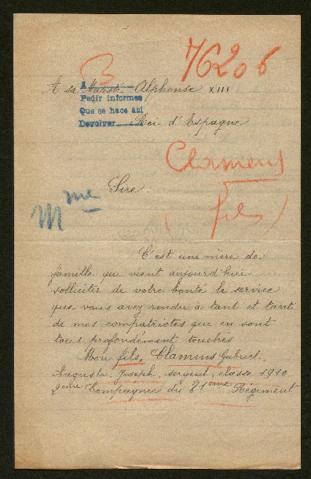 B 76206
A sa Majesté Alphonse XIII
A
Pedir informes
Que se hace asi
Devolver
Roi d'Espagne
Clamens
fils
Sire.
Mme
C'est une mère de
famille qui vient aujourd'hui
solliciter de votre bonté le service
que vous avez rendu à tant et tant
de mes compatriotes que en sont
tous profondément touchés
Mon fils, Clamens Gabriel
Auguste Joseph, sergent, classe 1910
9ème Compagnie du 81ème Régiment